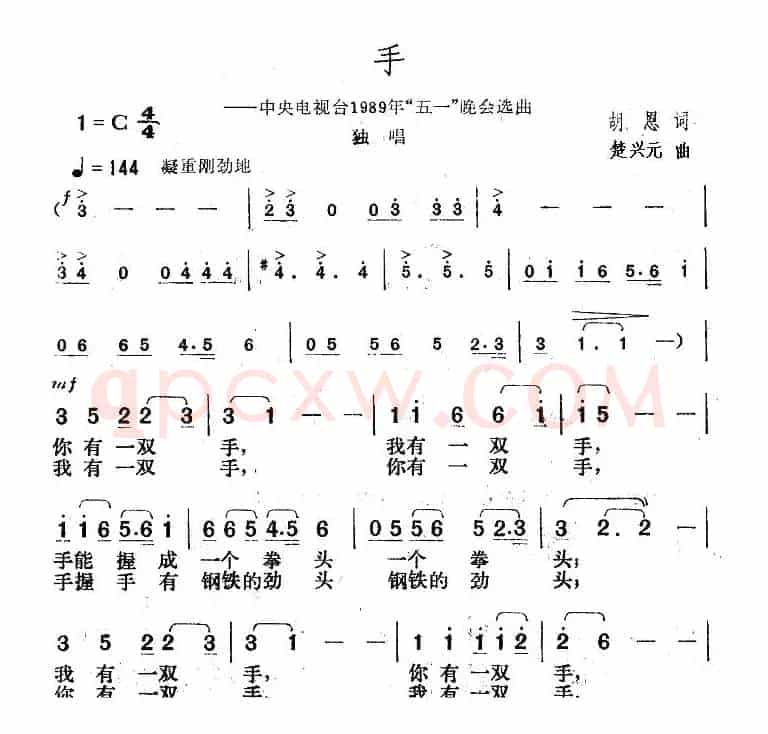 手
——中央电视台1989年“五一”晚会选曲
1=C 4/4
独唱
胡恩词
楚兴元曲
♩=144 凝重刚劲地
f
(3 — — | 2 3 0 0 3 3 3 | 4 — — |
3 4 0 0 4 4 4 | #4. 4. 4 | 5. 5. 5 | 0 1 1 6 5.6 1 |
0 6 6 5 4.5 6 | 0 5 5 6 5 2.3 | 3 1. 1 —)|
mf
3 5 2 2 3 | 3 1 — — | 1 1 6 6 1 | 1 5 — — |
你有一双 手, 我有一双 手,
我有一双 手, 你有一双 手,
1 1 6 5.6 1 | 6 6 5 4.5 6 | 0 5 5 6 5 2.3 | 3 2. 2 — |
手能握成一个拳头 一个拳头;
手握手有钢铁的劲头 钢铁的劲头;
3 5 2 2 3 | 3 1 — — | 1 1 1 1 2 | 2 6 — — |
我有一双 手, 你有一双 手,
你有一双 手, 我有一双 手,
qpcxw.COM